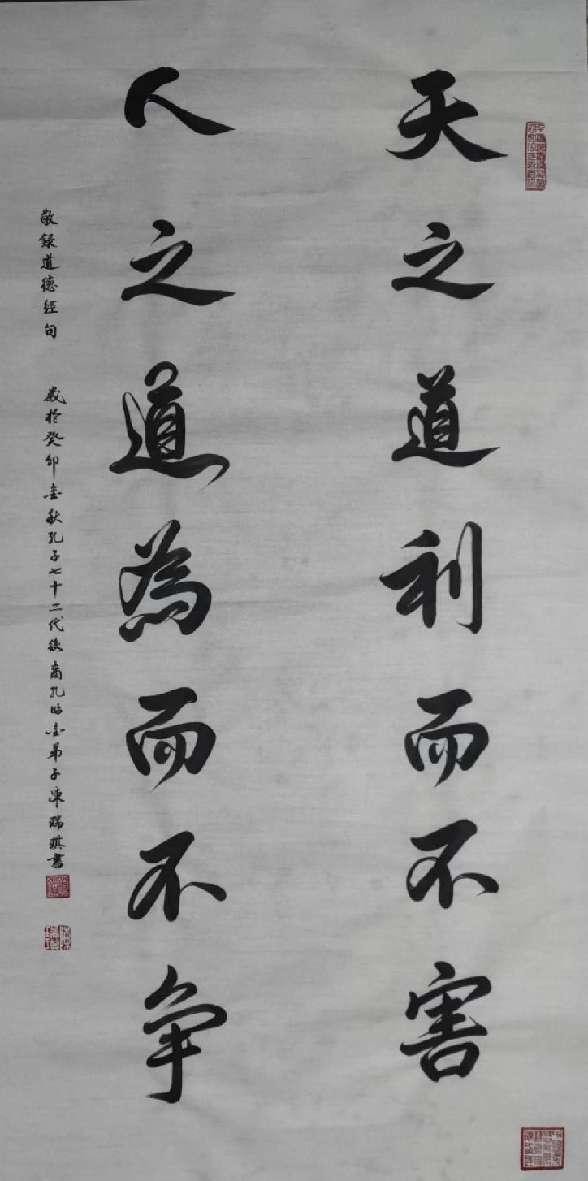 天之道利而不害
人之道為而不争
敬録道德經句
歲於癸卯金秋孔子七十二代後裔孔昭金弟子陳瑞琪書